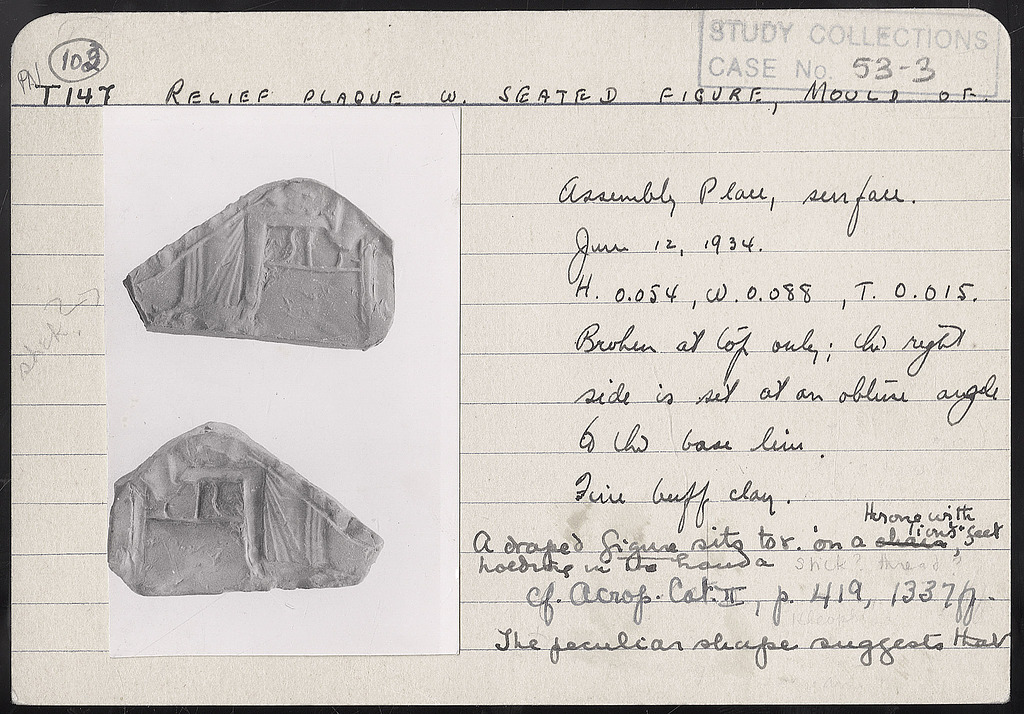 STUDY COLLECTIONS
CASE No. 53-3
PN 103
T 147 RELIEF PLAQUE W. SEATED FIGURE, MOULD OF.
Assembly Place, surface.
June 12, 1934.
H. 0.054, W. 0.088, T. 0.015.
Broken at top only; the right
side is set at an obtuse angle
to the base line.
Fine buff clay.
throne with
lions' feet
A draped figure sits to r. on a chair,
holding in the hands stick? thread?
cf. Acrop. Cat. II, p. 419, 1337 ff.
The peculiar shape suggests that
stick?